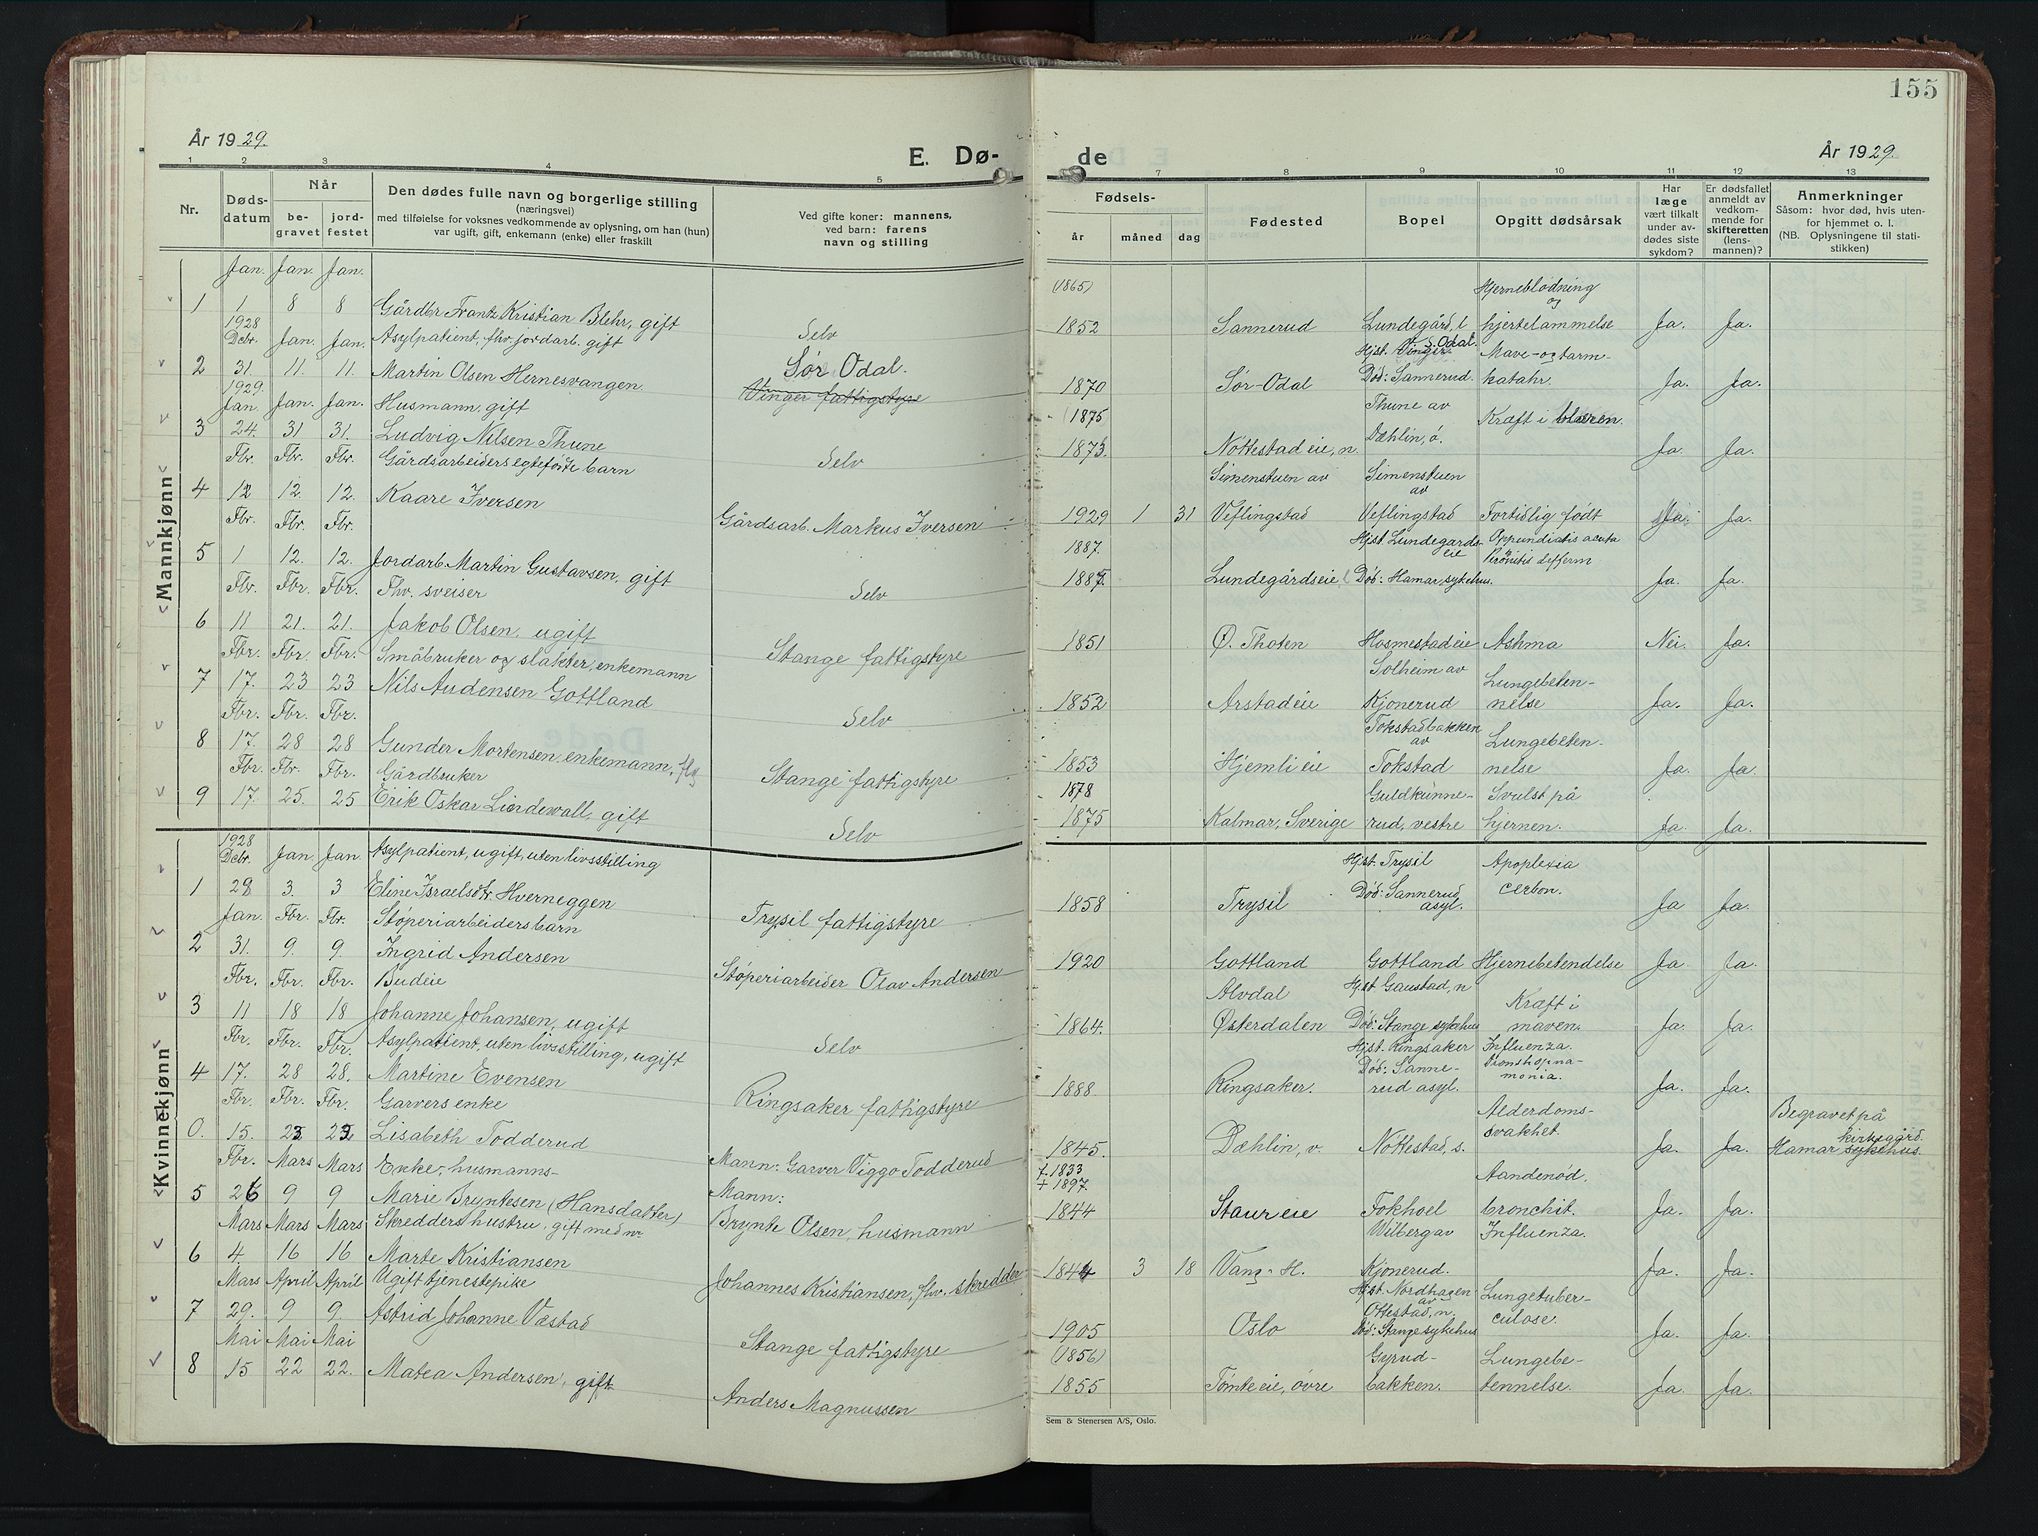 155
År 1929.
E. Dø-
de
År 1929.
1 2 3 4 5
7 8 9 10 11 12 13
Nr.
Døds-
datum
Når
be-
gravet
jord-
festet
Den dødes fulle navn og borgerlige stilling
(næringsvei)
med tilføielse for voksnes vedkommende av oplysning, om han (hun)
var ugift, gift, enkemann (enke) eller fraskilt
Ved gifte koner: mannens,
ved barn: farens
navn og stilling
Fødsels-
år måned dag
Fødested
Bopel
Opgitt dødsårsak
Har
læge
vært tilkalt
under av-
dødes siste
sykdom?
Er dødsfallet
anmeldt av
vedkom-
mende for
skifteretten
(lens-
mannen)?
Anmerkninger
Såsom: hvor død, hvis uten-
for hjemmet o. l.
(NB. Oplysningene til stati-
stikken)
Mannkjønn
Jan. Jan. Jan.
(1865) Hjerneblödning
og
1 1 8 8 Gårdbr Frantz Kristian Blehr, gift Selv 1852 Sannerud Lundegård, l hjertelammelse Ja. Ja.
1928
Debr. Jan. Jan. Asylpatient, fhv. jordarb. gift
Hjst. Vinger S. Odal. Mave- og tarm-
2 31. 11. 11. Martin Olsen Hernesvangen Sør Odal. 1870 Sør-Odal Död: Sannerud. katahr. Ja. Ja.
Vinger fattigstyre
1929.
Jan. Jan. Jan. Husmann, gift
(1875 Thune av Kræft i blæren.
3 24. 31 31. Ludvig Nilsen Thune Selv 1873 Nöttestad eie, n. Dæhlin, ö. Ja. Ja.
Fbr. Fbr. Fbr. Gårdsarbeiders egtefödte barn
Simenstuen av Simenstuen
av
4 12 12. 12. Kaare Iversen Gårdsarb. Markus Iversen 1929 1 31 Veflingstad Veflingstad Fortidlig födt Ja. Ja.
Fbr. Fbr. Fbr.
1887. Hjst. Lundegårds-
eie
5 1 12. 12. Jordarb. Martin Gustavsen, gift Selv 1887. Lundegårdseie Död: Hamar sykehus. Ja. Ja.
Fbr. Fbr. Fbr. Fhv. sveiser
6 11 21. 21. Jakob Olsen, ugift Stange fattigstyre 1851 Ø. Thoten Hosmestadeie Asthma Nei. Ja.
Fbr. Fbr. Fbr. Småbruker og slakter, enkemann
Solheim av Lungebeten-
7 17. 23 23 Nils Audensen Gottland Selv 1852 Arstadeie Kjonerud nelse Ja. Ja.
Fbr. Fbr. Fbr.
Tokstadbakken
av Lungebeten-
8 17. 28 28 Gunder Mortensen, enkemann, Stange fattigstyre 1853 Hjemli eie Tokstad nelse Ja. Ja.
Fbr. Fbr. Fbr. Gårdbruker
1878 Guldkunne- Svulst på
9 17. 25. 25 Erik Oskar Lindewall, gift Selv 1875 Kalmar, Sverige rud, vestre hjernen. Ja. Ja.
Kvinnekjønn
1928
Debr. Jan. Jan. Asylpatient, ugift, uten livsstilling
Hjst. Trysil Apoplexia
1 29 3. 3 Eline Israelsdtr. Hverneggen Trysil fattigstyre 1858 Trysil Död: Sannerud
asyl. Ja Ja.
Jan. Fbr. Fbr. Støperiarbeiders barn
2 31. 9. 9. Ingrid Andersen Støperiarbeider Olav Andersen 1920 Gottland Gottland Hjernebetendelse Ja Ja.
Fbr. Fbr. Fbr. Budeie
Alvdal Hjst. Gaustad, n Kræft i
3 11 18 18 Johanne Johansen, ugift Selv 1864. Østerdalen Död: Stange sykehus maven. Ja. Ja.
Fbr. Fbr. Fbr. Asylpatient, uten livsstilling, ugift
Hjst. Ringsaker Influenza.
4 17. 28 28. Martine Evensen Ringsaker fattigstyre 1888 Ringsaker. Död: Sanne-
rud asyl. Ja. Ja.
Fbr. Fbr. Fbr. Garvers enke
Alderdoms- Begravet på
0. 15. 23 23 Lisabeth Todderud Mann: Garver Viggo Todderud 1845. Dæhlin, v. Nöttestad, s. svakhet. Ja Ja. kirkegård.
Hamar sykehus.
Fbr. Mars Mars Enke, husmanns-
f. 1833
+ 1897. Aandenöd,
5 26 9 9 Marie Bryntesen (Hansdatter) Mann:
Brynte Olsen, husmann 1844 Staur eie Fokhoel bronchit. Ja. Ja.
Mars Mars Mars Skredders hustru, gift med nr.
Wilberg av Influenza.
6 4. 16 16 Marte Kristiansen Johannes Kristiansen, fhv. skredder 1844 3 18 Vang - H. Kjonerud. Ja. Ja.
Mars April April Ugift tjenestepike
Hjst. Nordhagen
av Lungetuber-
7 29. 9 9. Astrid Johanne Væstad Stange fattigstyre 1905 Oslo Ottestad, n.
Död: Stange sykehus culose. Ja. Ja.
Mai Mai Mai
(1856) Gyrud- Lungebe-
8 15 22 22. Matea Andersen, gift Anders Magnussen 1855 Tomteeie, övre bakken. tennelse. Ja. Ja.
Sem & Stenersen A/S, Oslo.